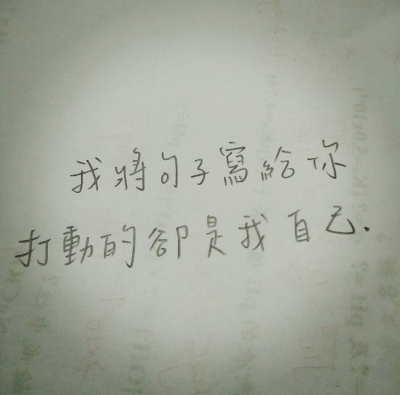 我將句子寫給你
打動的卻是我自己.